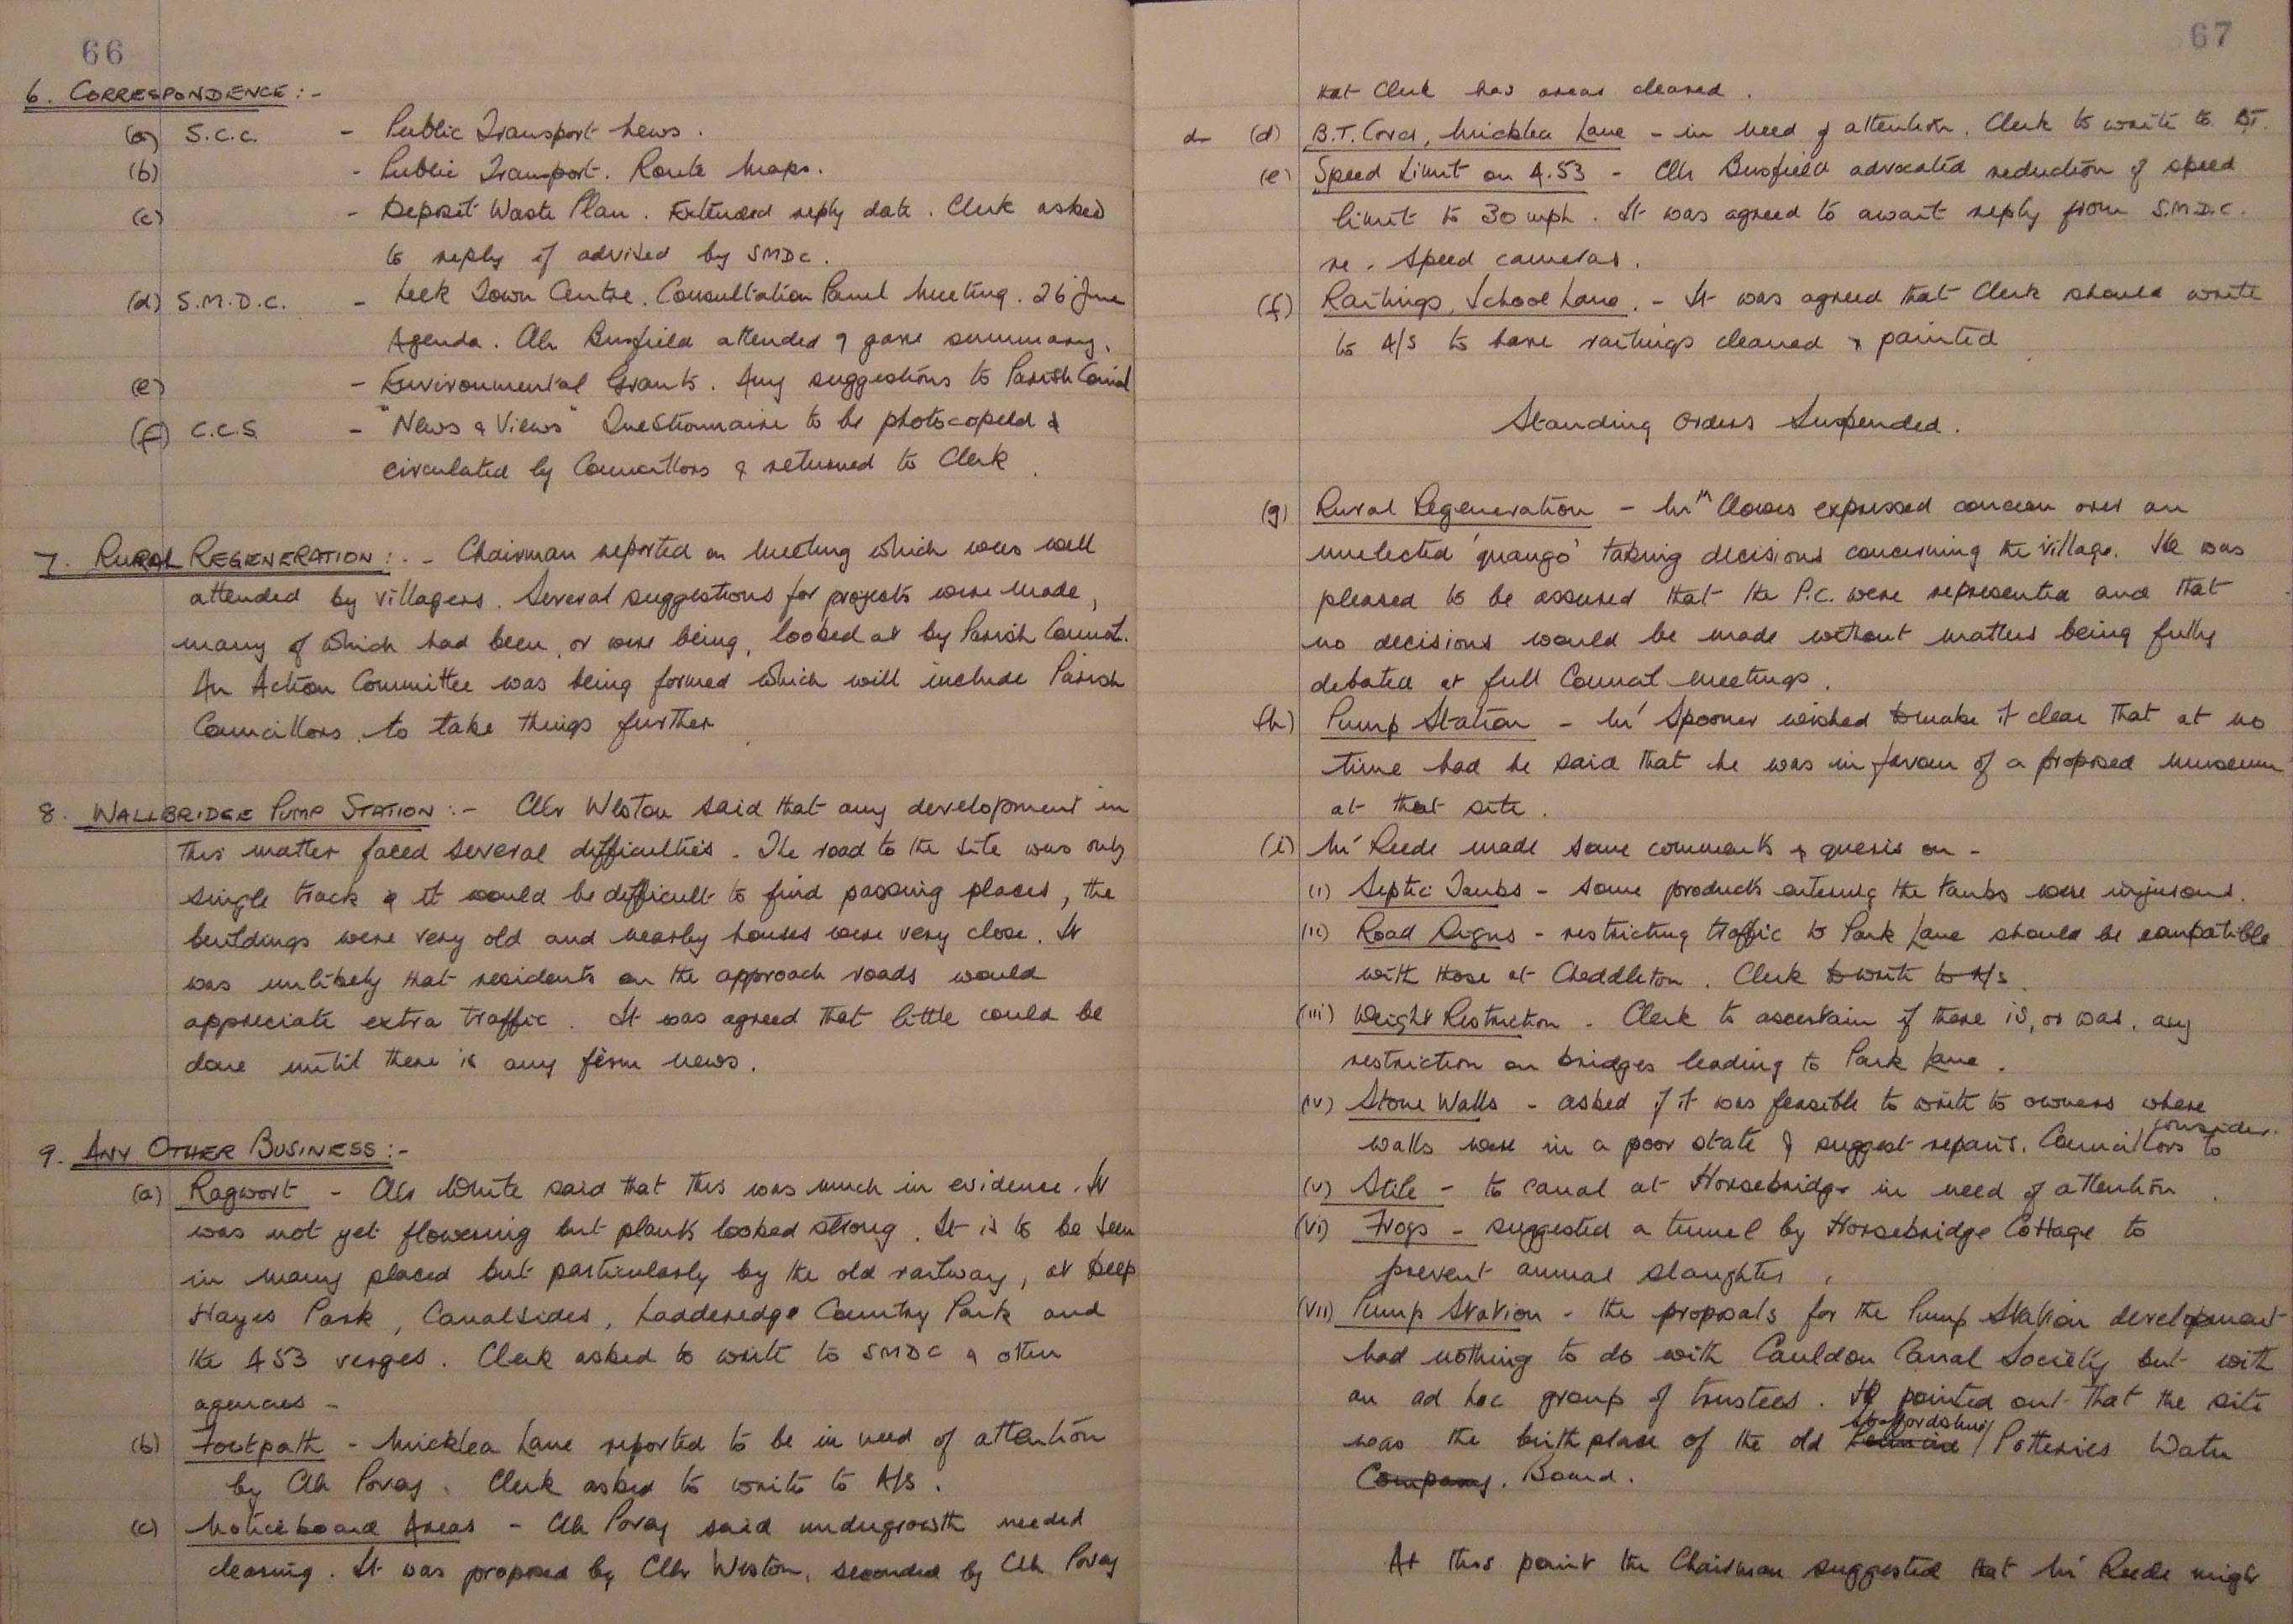 66
6. CORRESPONDENCE :-
(a) S.C.C. - Public Transport News.
(b) - Public Transport. Route Maps.
(c) - Deposit Waste Plan. Extended reply date. Clerk asked
to reply if advised by SMDC.
(d) S.M.D.C. - Leek Town Centre. Consultation Panel Meeting. 26 June
Agenda. Cllr Busfield attended & gave summary.
(e) - Environmental Grants. Any suggestions to Parish Council
(f) C.C.S. - "News & Views" Questionnaire to be photocopied &
circulated by Councillors & returned to Clerk.
7. RURAL REGENERATION :- - Chairman reported on Meeting which was well
attended by villagers. Several suggestions for projects were made,
many of which had been, or were being, looked at by Parish Council.
An Action Committee was being formed which will include Parish
Councillors, to take things further.
8. WALLBRIDGE PUMP STATION :- Cllr Weston said that any development in
this matter faced several difficulties. The road to the site was only
single track & it would be difficult to find passing places, the
buildings were very old and nearby houses were very close. It
was unlikely that residents on the approach roads would
appreciate extra traffic. It was agreed that little could be
done until there is any firm news.
9. ANY OTHER BUSINESS :-
(a) Ragwort - Cllr White said that this was much in evidence. It
was not yet flowering but plants looked strong. It is to be seen
in many placed but particularly by the old railway, at Deep
Hayes Park, Canalsides, Ladderedge Country Park and
the A53 verges. Clerk asked to write to SMDC & other
agencies -
(b) Footpath - Micklea Lane reported to be in need of attention
by Cllr Povey. Clerk asked to write to A/S.
(c) Noticeboard Areas - Cllr Povey said undergrowth needed
clearing. It was proposed by Cllr Weston, seconded by Cllr Povey
67
that Clerk has areas cleared.
(d) B.T. Cover, Micklea Lane - in need of attention. Clerk to write to BT.
(e) Speed Limit on A.53 - Cllr Busfield advocated reduction of speed
limit to 30 mph. It was agreed to await reply from S.M.D.C.
re. speed cameras.
(f) Railings, School Lane. - It was agreed that Clerk should write
to A/S to have railings cleaned & painted
Standing Orders Suspended.
(g) Rural Regeneration - Mr Clowes expressed concern over an
unelected 'quango' taking decisions concerning the village. He was
pleased to be assured that the P.C. were represented and that
no decisions would be made without matters being fully
debated at full Council meetings.
(h) Pump Station - Mr Spooner wished to make it clear that at no
time had he said that he was in favour of a proposed museum
at that site.
(i) Mr Reede made some comments & queries on -
(i) Septic Tanks - some products entering the tanks were injurious.
(ii) Road Signs - restricting traffic to Park Lane should be compatible
with those at Cheddleton. Clerk to write to A/S.
(iii) Weight Restriction - Clerk to ascertain if there is, or was, any
restriction on bridges leading to Park Lane.
(iv) Stone Walls - asked if it was feasible to write to owners where
walls were in a poor state & suggest repairs. Councillors to consider.
(v) Stile - to canal at Horsebridge in need of attention.
(vi) Frogs - suggested a tunnel by Horsebridge Cottage to
prevent annual slaughter.
(vii) Pump Station - the proposals for the Pump Station development
had nothing to do with Cauldon Canal Society but with
an ad hoc group of trustees. He pointed out that the site
was the birthplace of the old Staffordshire / Potteries Water
Company. Board.
At this point the Chairman suggested that Mr Reede might